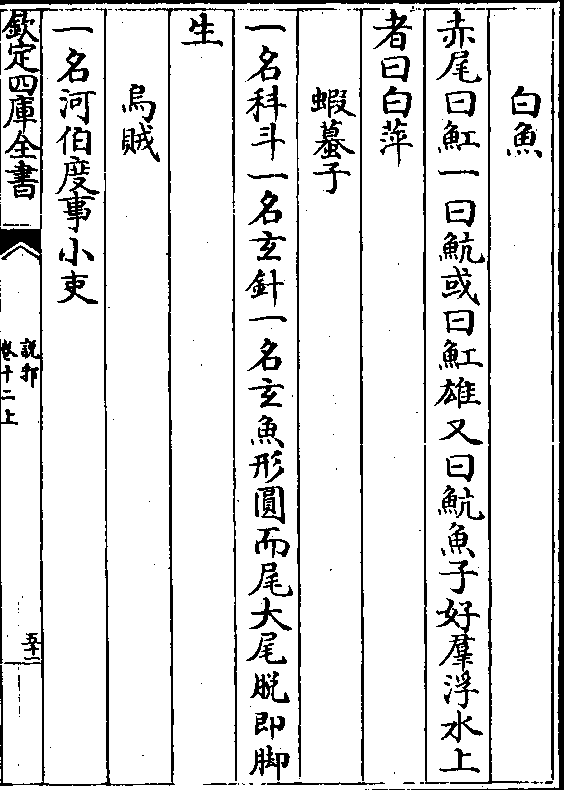 白魚
赤尾曰魟一曰魧或曰魟雄又曰魧魚子好羣浮水上
者曰白萍
蝦蟇子
一名科斗一名玄針一名玄魚形圓而尾大尾脫即脚
生
烏賊
一名河伯度事小吏
欽定四庫全書
說郛
卷十二上
五十二